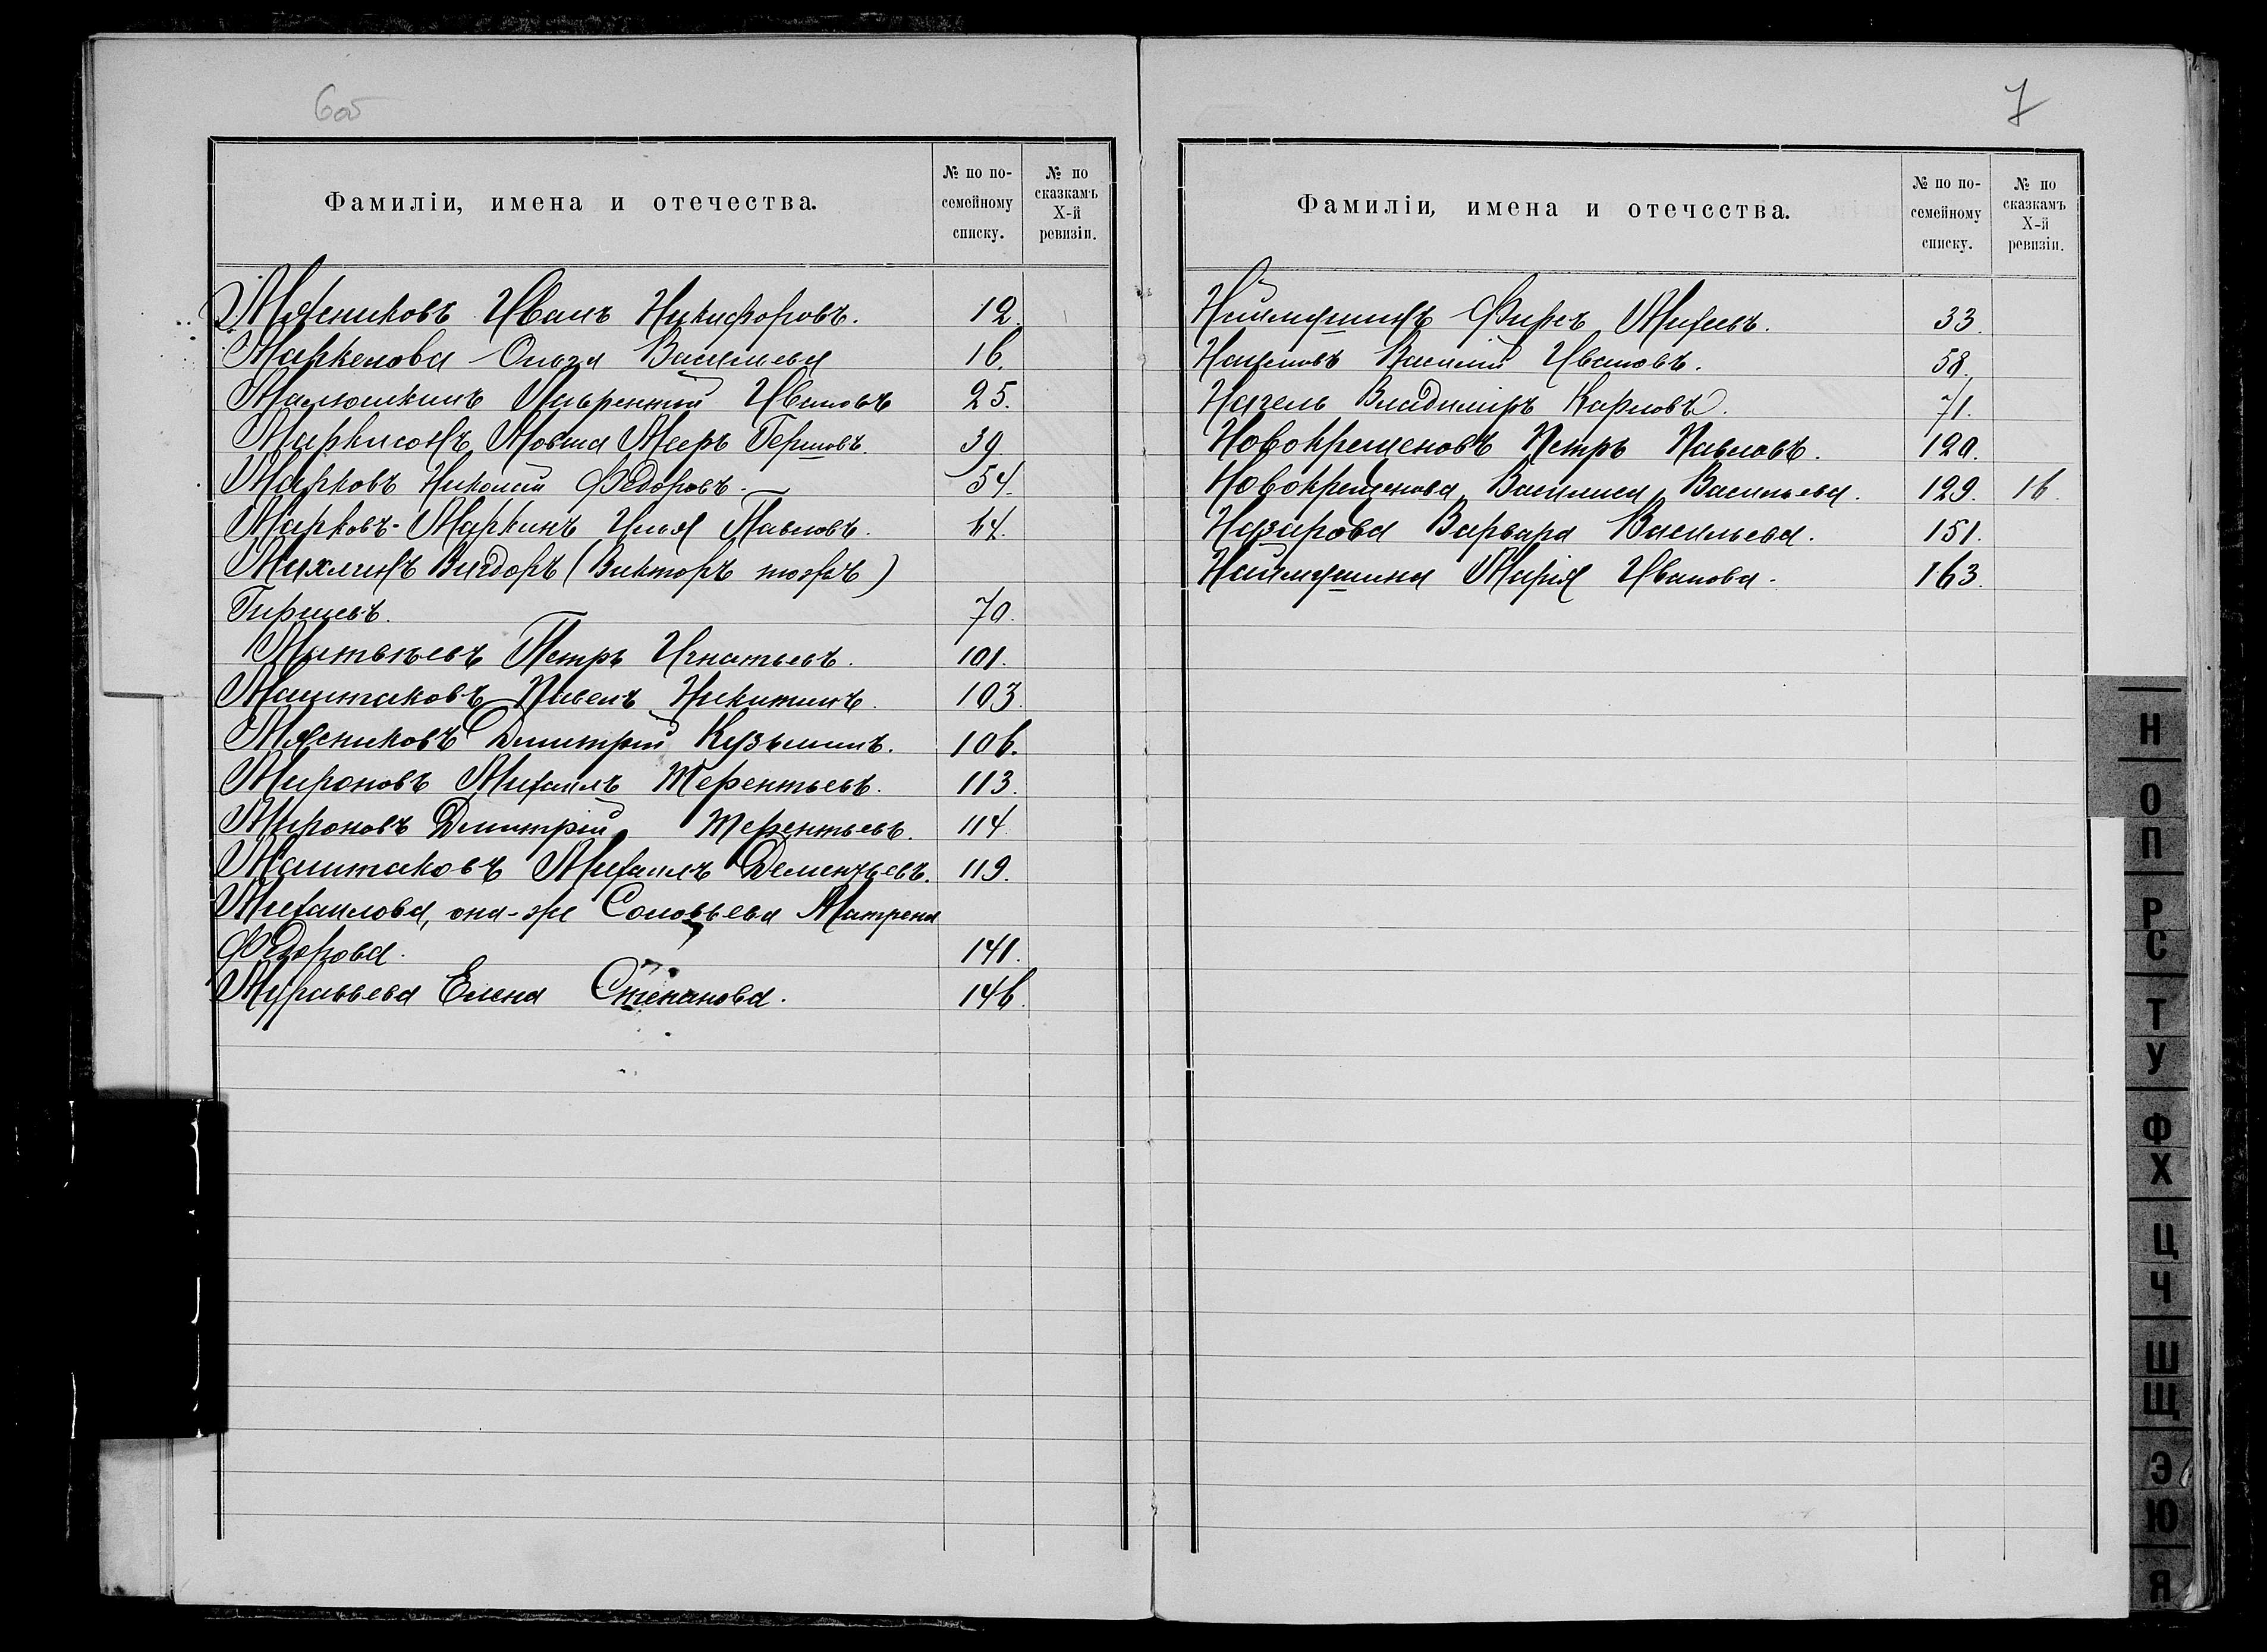 6об
Фамиліи, имена и отечества. № по по-семейному списку. № по сказкамъ X-й ревизіи.
Мясниковъ Иванъ Никифоровъ. 12.
Маркелова Ольга Васильева 16.
Малюшкинъ Лаврентій Ивановъ 25.
Маркисонъ Мовша Мееръ Гершовъ. 39.
Марковъ Николай Федоровъ. 54.
Марковъ-Маркинъ Илья Павловъ. 64.
Михлинъ Вигдоръ (Викторъ тожъ)
Гиршевъ. 70.
Матвѣевъ Петръ Игнатьевъ. 101.
Маштаковъ Павелъ Никитинъ. 103.
Мясниковъ Дмитрій Кузьминъ. 106.
Мироновъ Михаилъ Терентьевъ. 113.
Мироновъ Дмитрій Терентьевъ. 114.
Маштаковъ Михаилъ Дементьевъ. 119.
Михаилова, она-же Соловьева Матрена
Федорова. 141.
Муравьева Елена Степанова. 146.
7
Фамиліи, имена и отечества. № по по-семейному списку. № по сказкамъ X-й ревизіи.
Наймушинъ Фирсъ Михеевъ. 33.
Наумовъ Василій Ивановъ. 58.
Нагель Владиміръ Карловъ. 71.
Новокрещеновъ Петръ Павловъ. 120.
Новокрещенова Василиса Васильева. 129. 16.
Назарова Варвара Васильева. 151.
Наймушина Марія Иванова. 163.
Н
О
П
Р
С
Т
У
Ф
Х
Ц
Ч
Ш
Щ
Э
Ю
Я